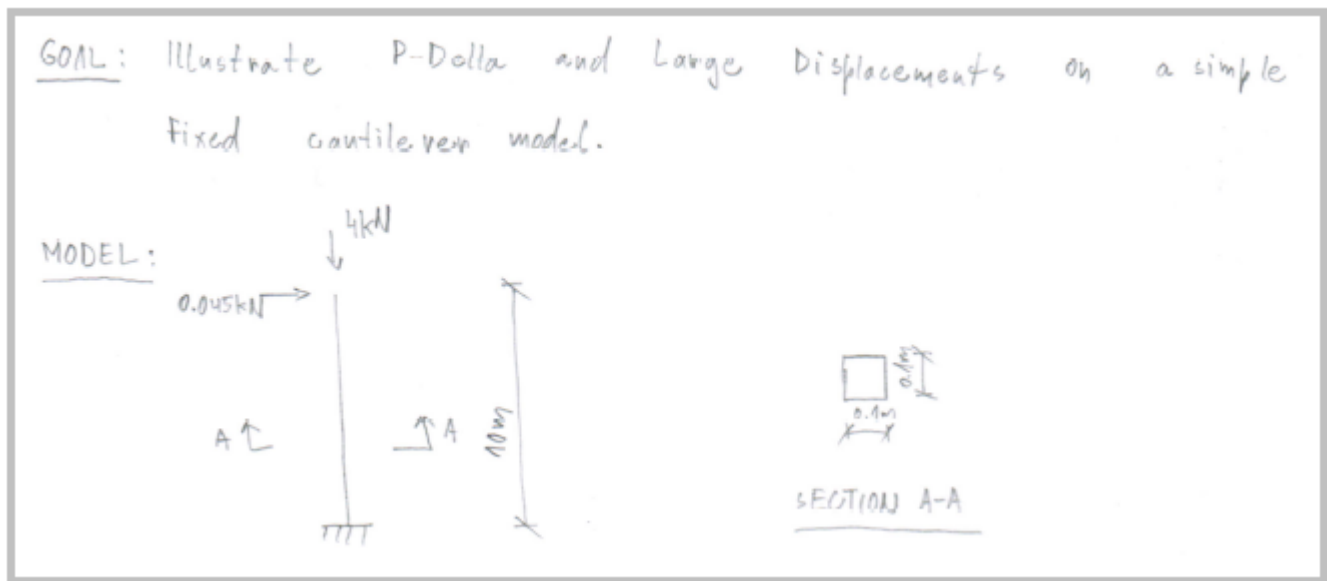 GOAL: Illustrate P-Delta and Large Displacements on a simple
Fixed cantilever model.
4kN
MODEL:
0.045kN
10m
A
A
0.1m
0.1m
SECTION A-A